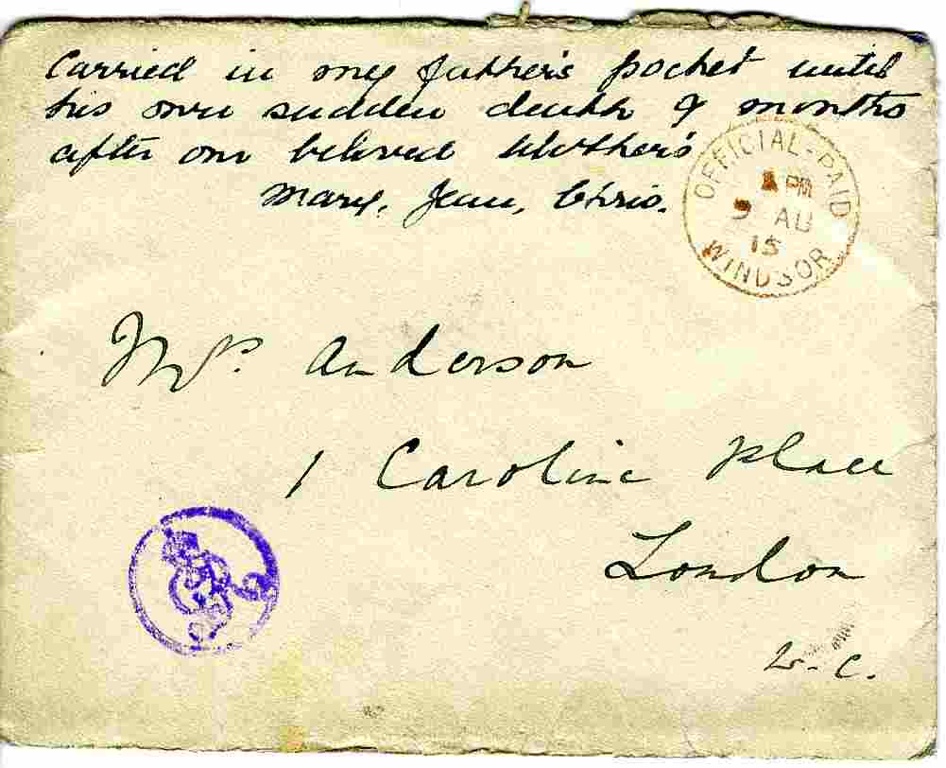 Carried in my father's pocket until
his own sudden death 9 months
after our beloved Mother's
Mary, Jean, Chris.
OFFICIAL-PAID
PM
9 AU
15
WINDSOR
Mrs. Anderson
1 Caroline Place
London
W.C.